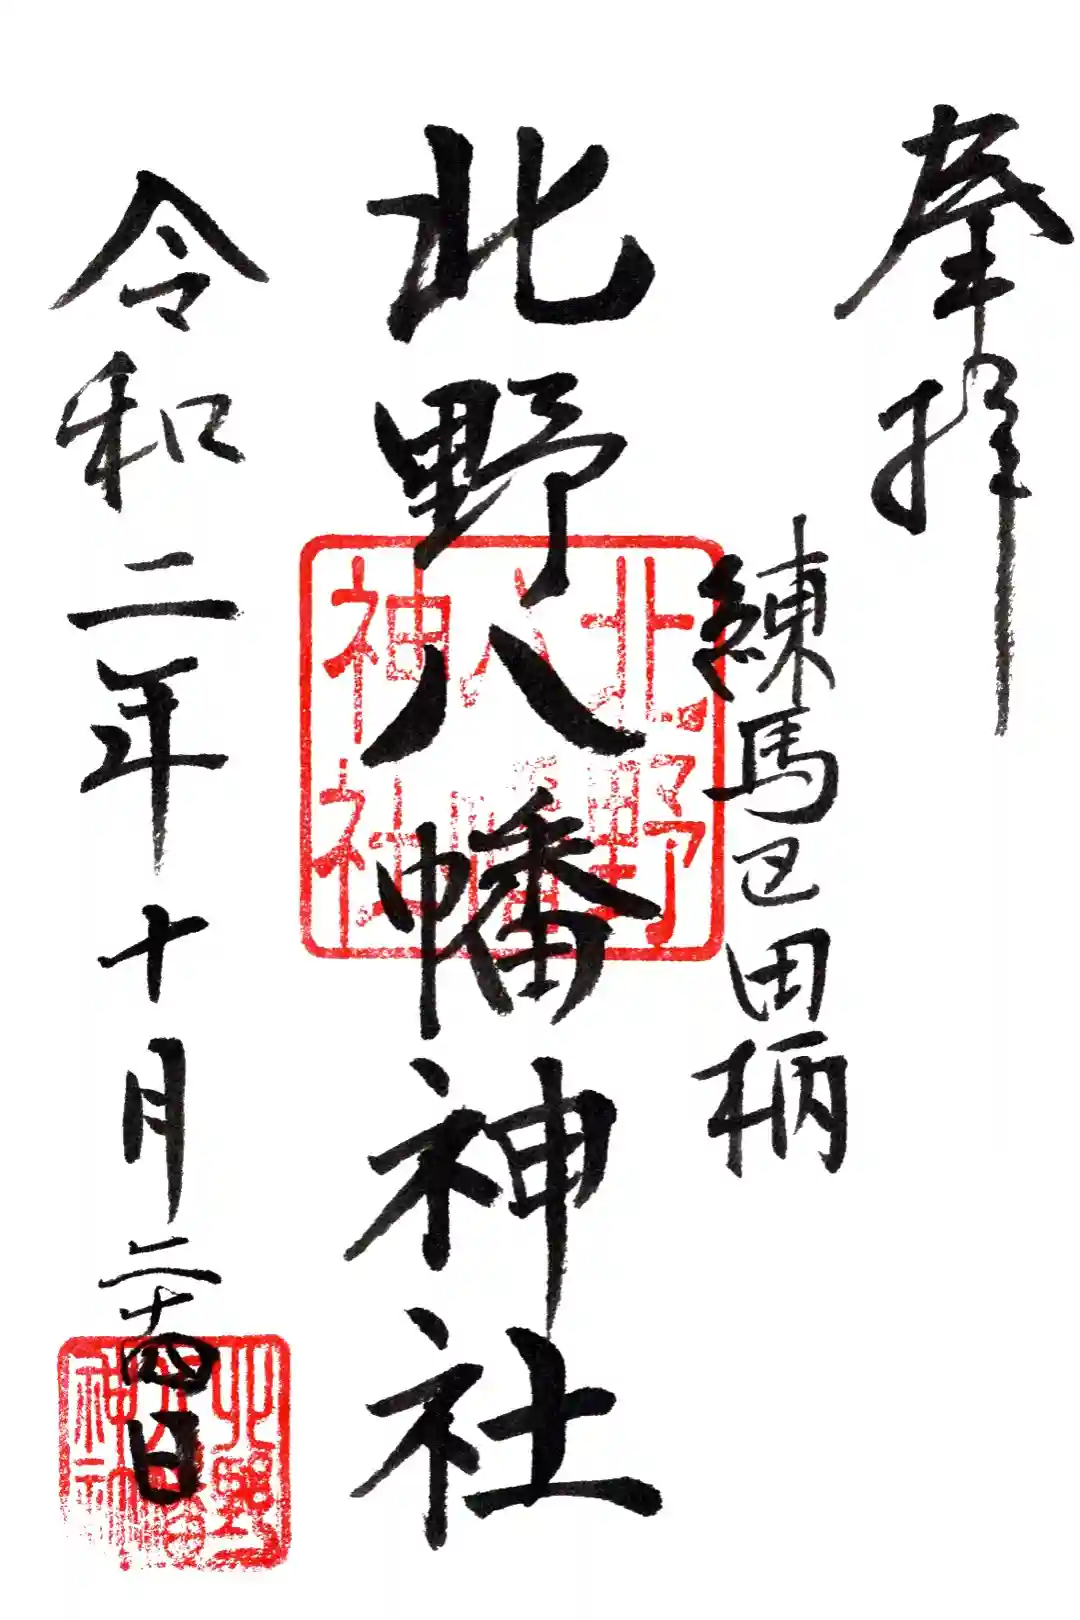 奉拝
練馬区田柄
北野八幡神社
北野
八幡
神社
令和二年十月二十四日
北野
八幡
神社